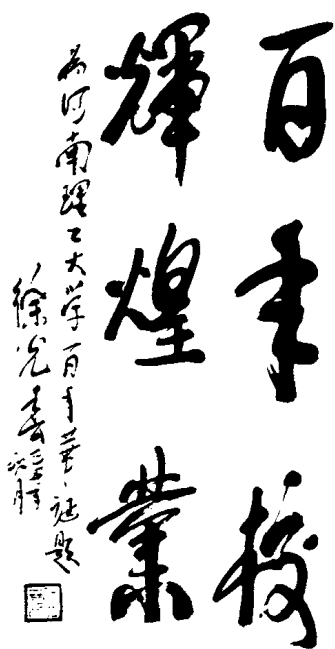 百年校
辉煌业
为河南理工大学百年华诞题
徐光春